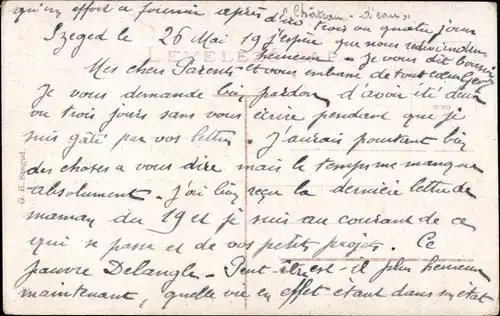 qu'un effort a fournir après d'ici trois ou quatre jours
"Château d'eau"
Szeged le 26 Mai 19 j'espère que nous redeviendrons
LEVELE
heureux - Je vous dit bonsoir
Mes chers Parents et vous embrasse de tout cœur
Je vous demande bien pardon d'avoir été deux
ou trois jours sans vous écrire pendant que je
suis gâté par vos lettres. J'aurais pourtant bien
des choses a vous dire mais le temps me manque
absolument - J'ai bien reçu la dernière lettre de
maman du 19 et je suis au courant de ce
qui se passe et de vos petits projets. Ce
pauvre Delangle - Peut-être est-il plus heureux
maintenant, quelle vie en effet étant dans son état
G. H. Szeged.